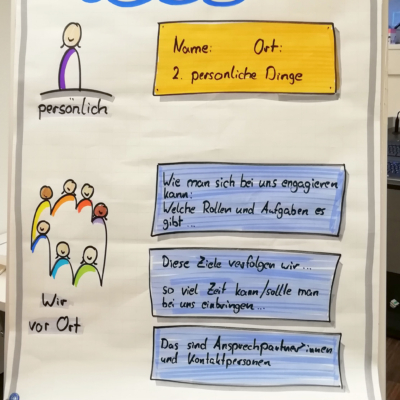 Name: Ort:
2. persönliche Dinge
persönlich
Wie man sich bei uns engagieren
kann:
Welche Rollen und Aufgaben es
gibt...
Diese Ziele verfolgen wir...
so viel Zeit kann/sollte man
bei uns einbringen...
Wir
vor Ort
Das sind Ansprechpartner*innen
und Kontaktpersonen